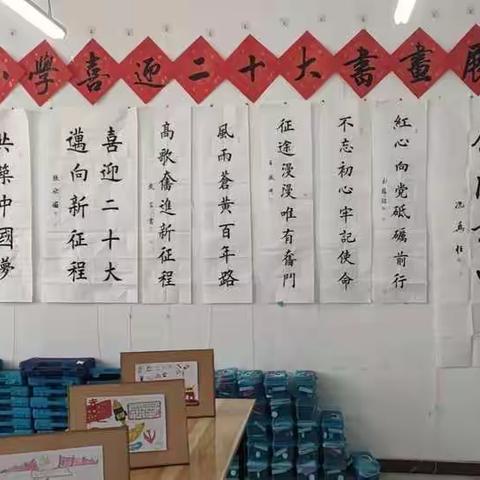 小學喜迎二十大書畫展
共築中國夢
喜迎二十大
邁向新征程
高歌奮進新征程
風雨蒼黄百年路
征途漫漫唯有奮鬥
不忘初心牢記使命
紅心向党砥礪前行